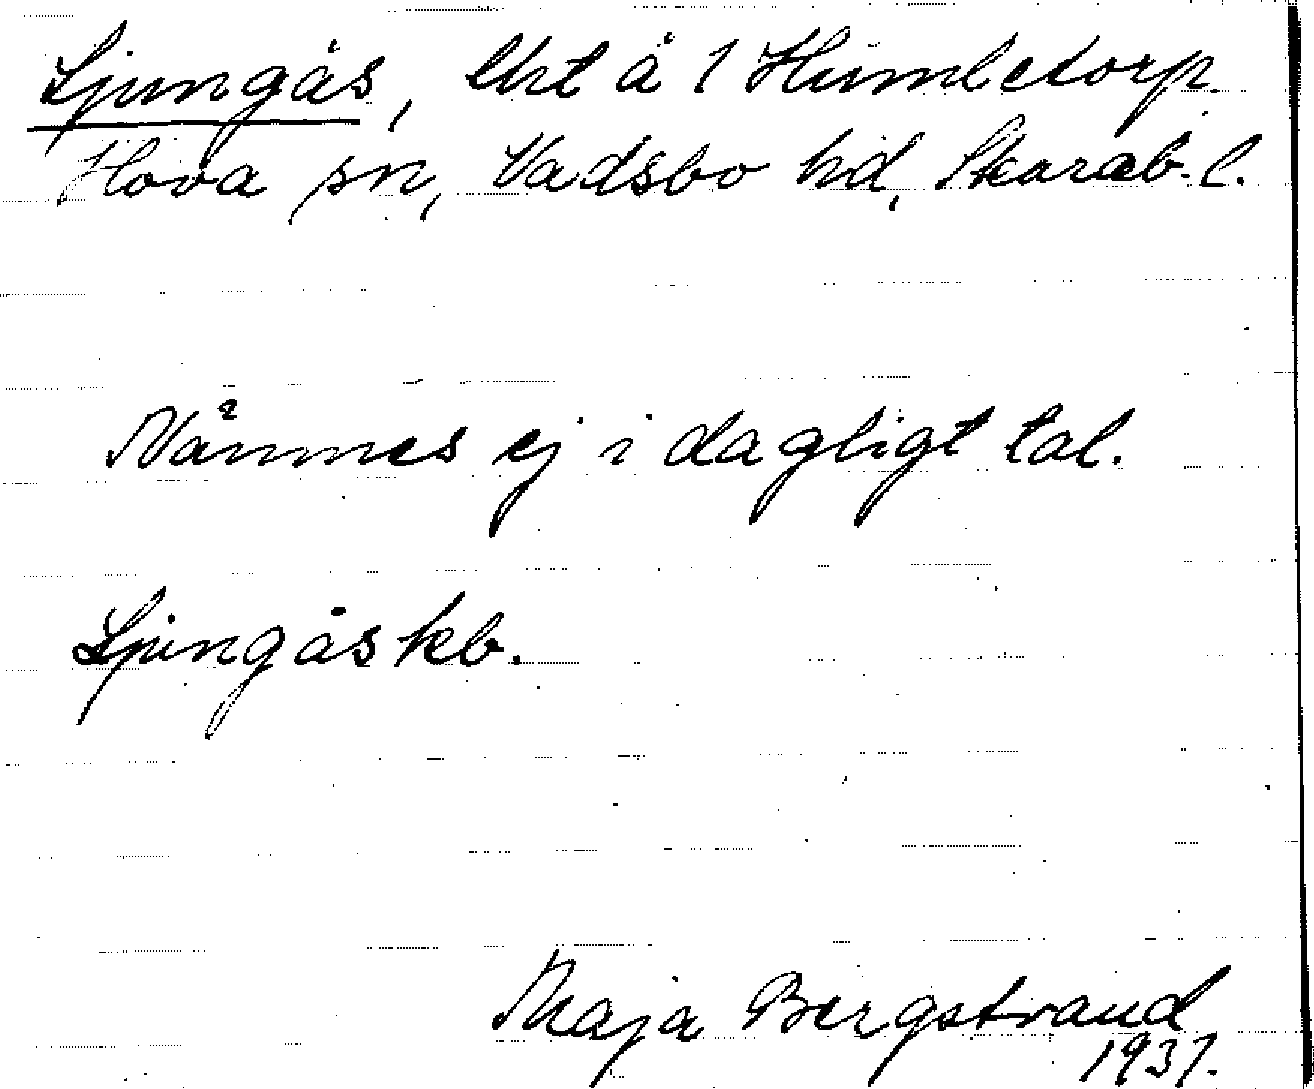 Ljungås, lht å 1 Humletorp.
Hova sn, Vadsbo hd, Skarab. l.
Nämnes ej i dagligt tal.
Ljungås kb.
Maja Bergstrand
1937.